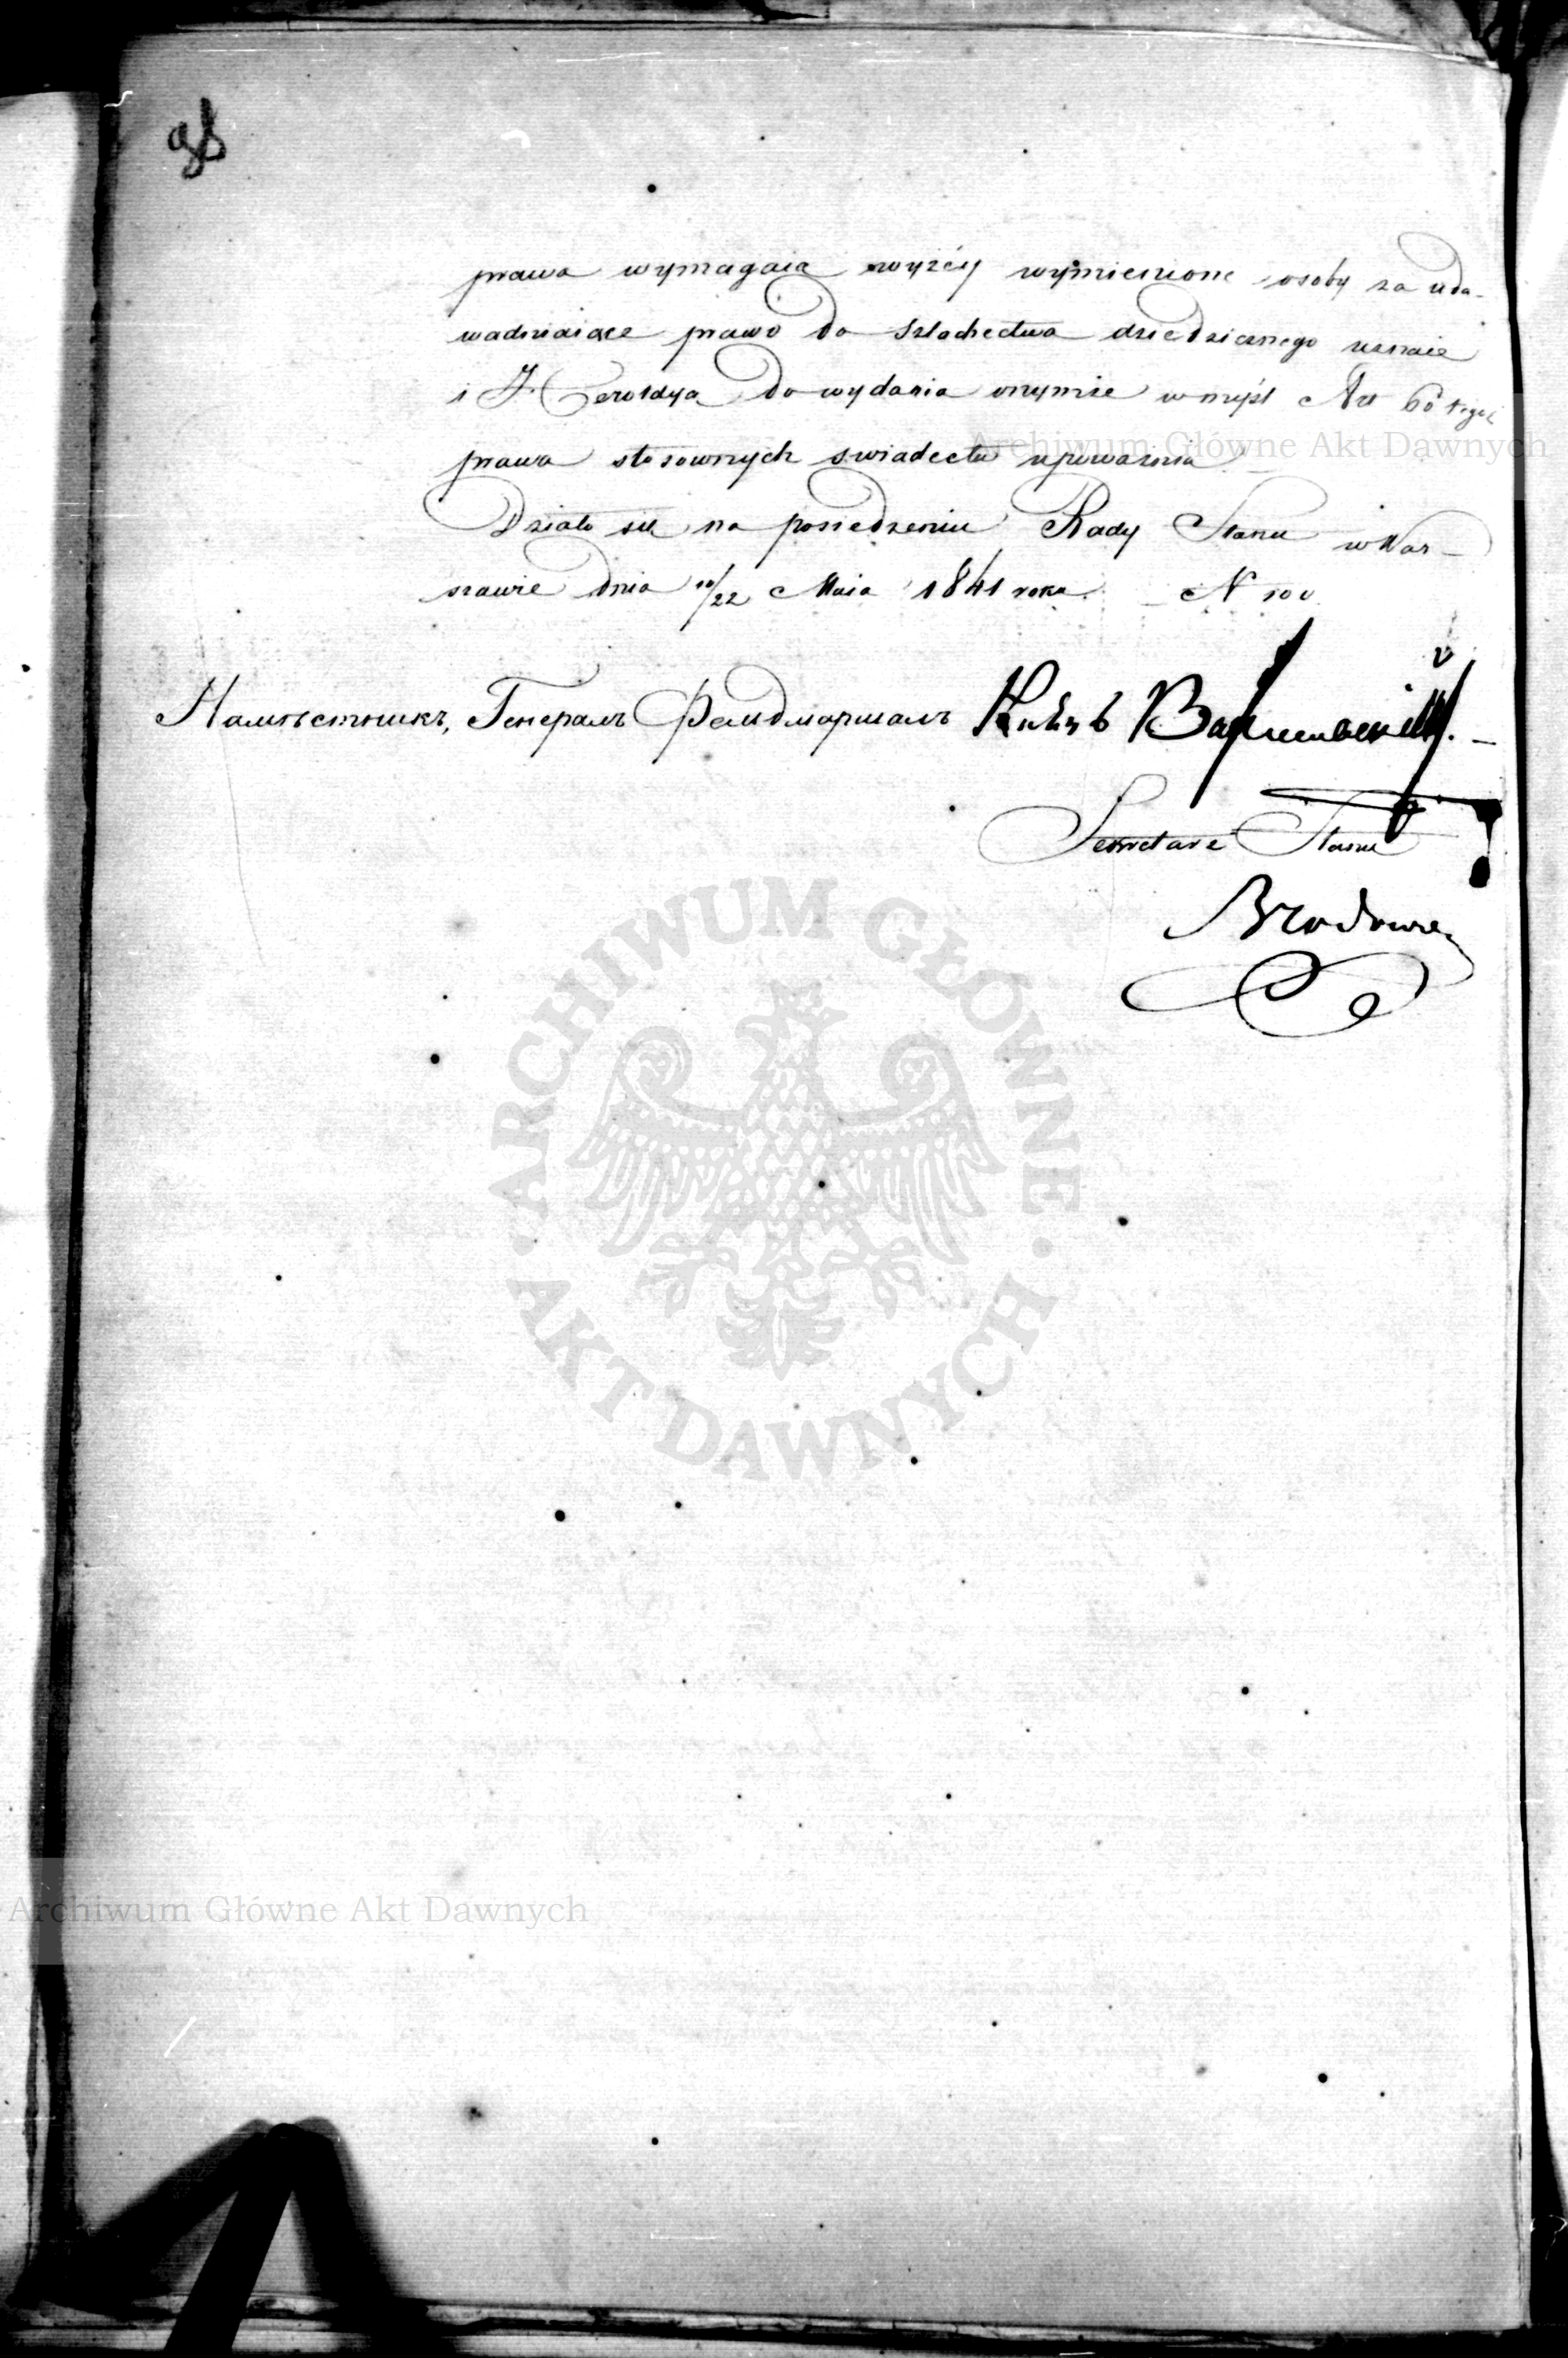 98
prawa wymagaią wyżéy wymienione osoby za uda-
wadniaiące prawo do Szlachectwa dziedzicznego uznaie
i Heroldyą do wydania onymże w myśl Art 60 tegoż
prawa stosownych swiadectw upoważnia.
Działo się na posiedzeniu Rady Stanu w War-
szawie dnia 10/22 Maia 1841 roku. N 100
Намѣстникъ, Генералъ Фельдмаршалъ Князь Варшавскій.
Sekretarz Stanu
Archiwum Główne Akt Dawnych
ARCHIWUM GŁÓWNE · AKT DAWNYCH ·
Archiwum Główne Akt Dawnych